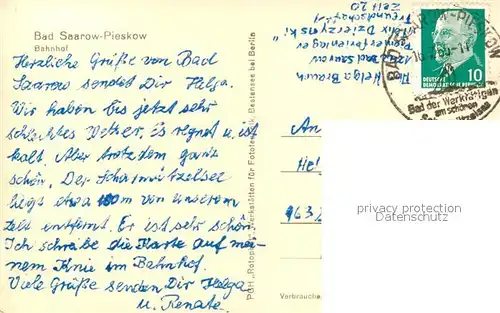 Bad Saarow-Pieskow
Bahnhof
Herzliche Grüße von Bad
Saarow sendet Dir Helga.
Wir haben bis jetzt sehr
schlechtes Wetter. Es regnet u. ist
kalt. Aber trotzdem ganz
schön. Der Scharmützelsee
liegt etwa 100m von unserem
Zelt entfernt. Er ist sehr schön.
Ich schreibe die Karte auf mei-
nem Knie im Bahnhof.
Viele Grüße senden Dir Helga
u. Renate.
PGH „Rotophot", Werkstätten für Fototechnik, Bestensee bei Berlin
Helga
Bad Saarow
Freundschaft
Zelt 20
BAD SAAROW-PIESKOW
Bad der Werktätigen
am schönen
Scharmützelsee
DEUTSCHE
DEMOKRATISCHE REPUBLIK
10
An
Hel
963
privacy protection
Datenschutz
Verbrauche